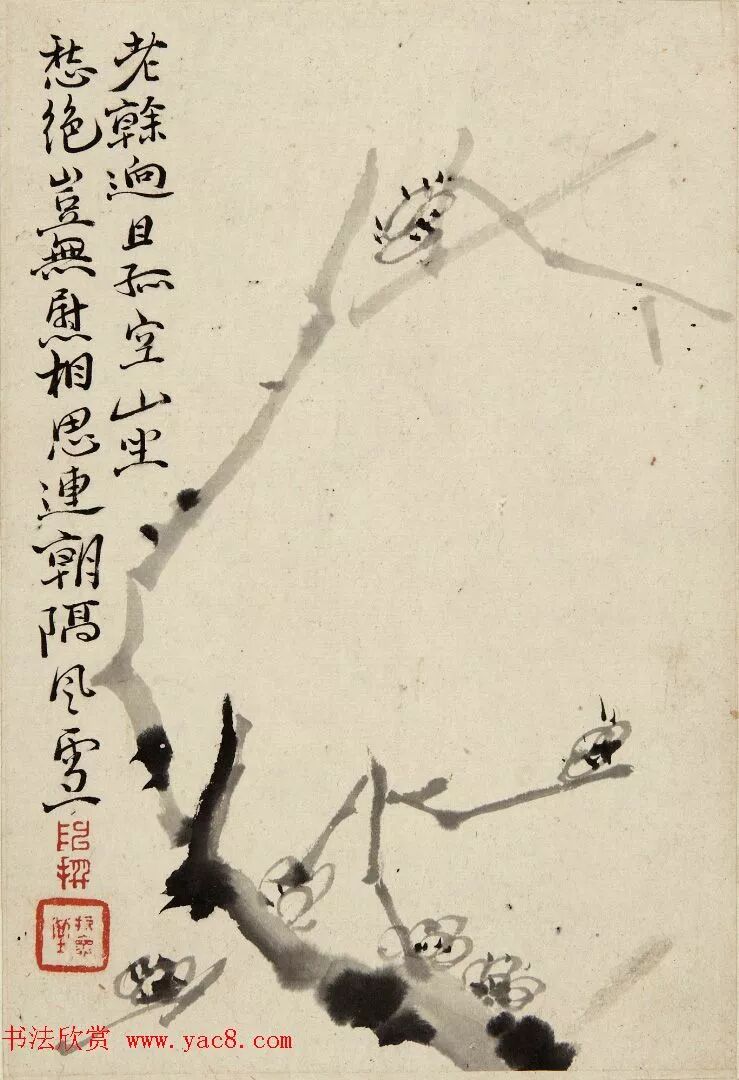 老榦迥且孤空山坐
愁绝豈無慰相思連朝隔風雪
书法欣赏 www.yac8.com